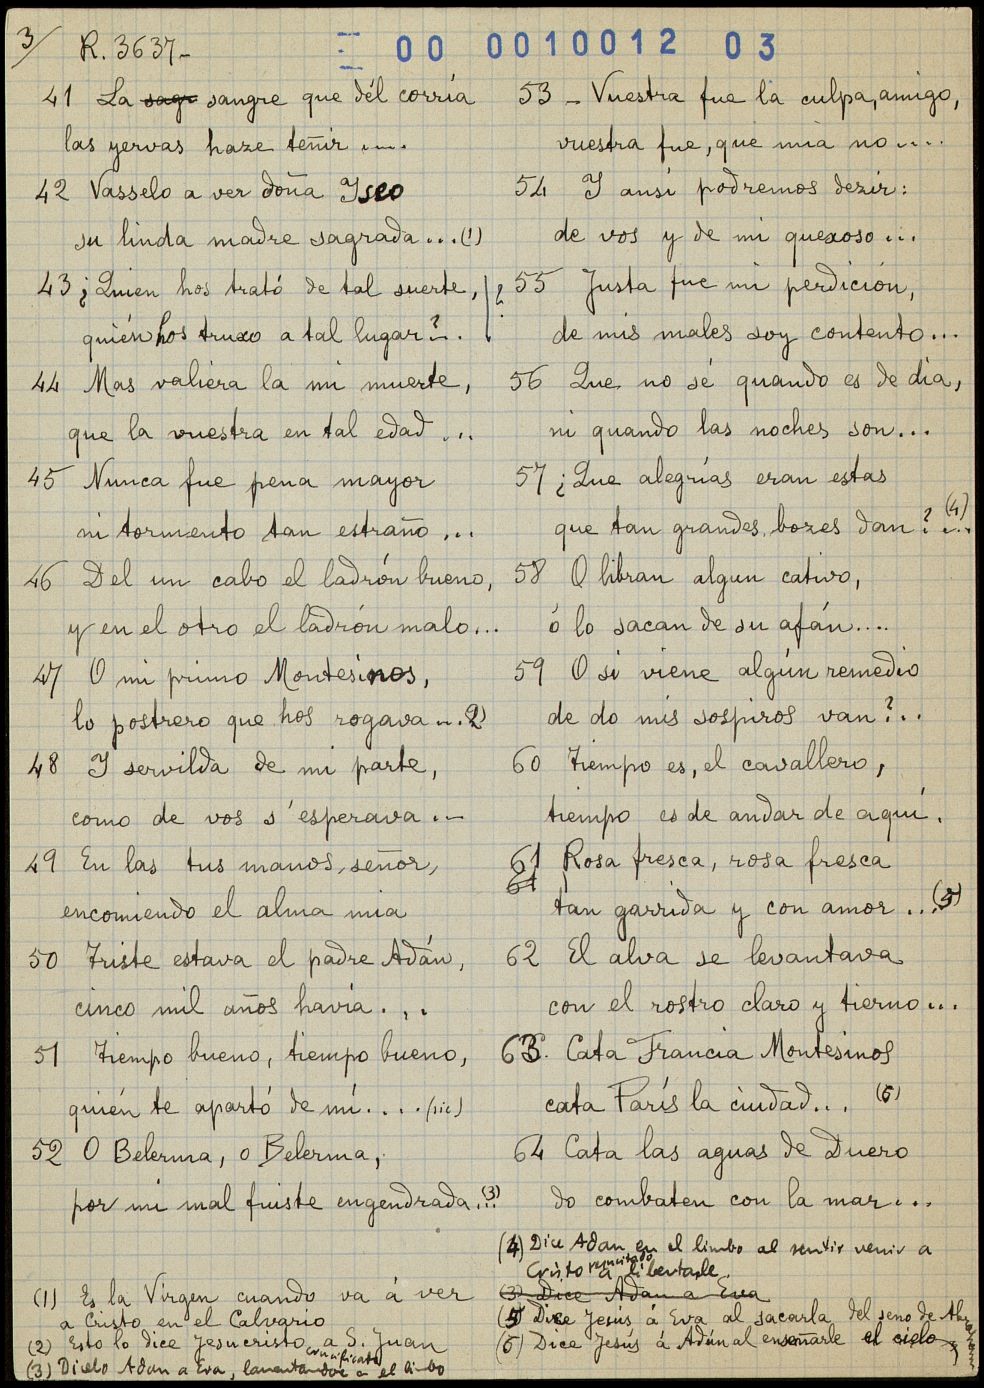 3/ R. 3637-
00 0010012 03
41 La sagr sangre que dél corría
las yervas haze teñir ....
42 Vasselo a ver doña Iseo
su linda madre sagrada...(1)
43 ¿Quien hos trató de tal suerte,
quién hos truxo a tal lugar?..
44 Mas valiera la mi muerte,
que la vuestra en tal edad ...
45 Nunca fue pena mayor
ni tormento tan estraño ...
46 Del un cabo el ladrón bueno,
y en el otro el ladrón malo...
47 O mi primo Montesinos,
lo postrero que hos rogava ... 2)
48 I servilda de mi parte,
como de vos s'esperava ...
49 En las tus manos, señor,
encomiendo el alma mia
50 Triste estava el padre Adán,
cinco mil años havía ...
51 Tiempo bueno, tiempo bueno,
quién te apartó de mí.... (sic)
52 O Belerma, o Belerma,
por mi mal fuiste engendrada..(3)
(1) Es la Virgen cuando va á ver
a Cristo en el Calvario
(2) Esto lo dice Jesucristo a S. Juan
crucificado
(3) Dicelo Adan a Eva, lamentandose en el limbo
53 - Vuestra fue la culpa, amigo,
vuestra fue, que mia no....
54 I ansi podremos dezir:
de vos y de mi quexoso...
?
55 Justa fue mi perdición,
de mis males soy contento...
56 Que no sé quando es de dia,
ni quando las noches son...
57 ¿Que alegrías eran estas
que tan grandes bozes dan? (4)...
58 O libran algun cativo,
ó lo sacan de su afán....
59 O si viene algún remedio
de do mis sospiros van?..
60 Tiempo es, el cavallero,
tiempo es de andar de aquí.
61 Rosa fresca, rosa fresca
61
tan garrida y con amor ...(5)
62 El alva se levantava
con el rostro claro y tierno...
63. Cata Francia Montesinos
cata París la ciudad... (6)
64 Cata las aguas de Duero
do combaten con la mar...
(4) Dice Adan en el limbo al sentir venir a
Cristo resucitado á libertarle.
(3) Dice Adan a Eva
(5) Dice Jesús á Eva al sacarla del seno de
(6) Dice Jesús á Adán al enseñarle el cielo